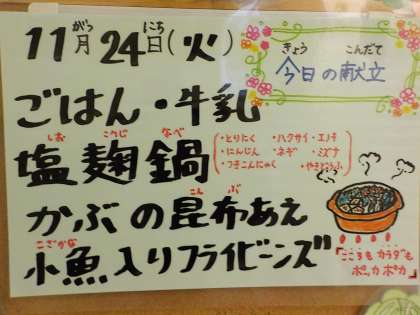 11月24日(火)
がつ にち
きょう こんだて
今日の献立
ごはん・牛乳
しお こうじ なべ
塩麹鍋
・とりにく ・ハクサイ ・エノキ
・にんじん ・ネギ ・ミズナ
・つきこんにゃく ・やきどうふ
こんぶ
かぶの昆布あえ
こざかな
小魚入りフライビーンズ
「こころもカラダも
ポッカポカ」